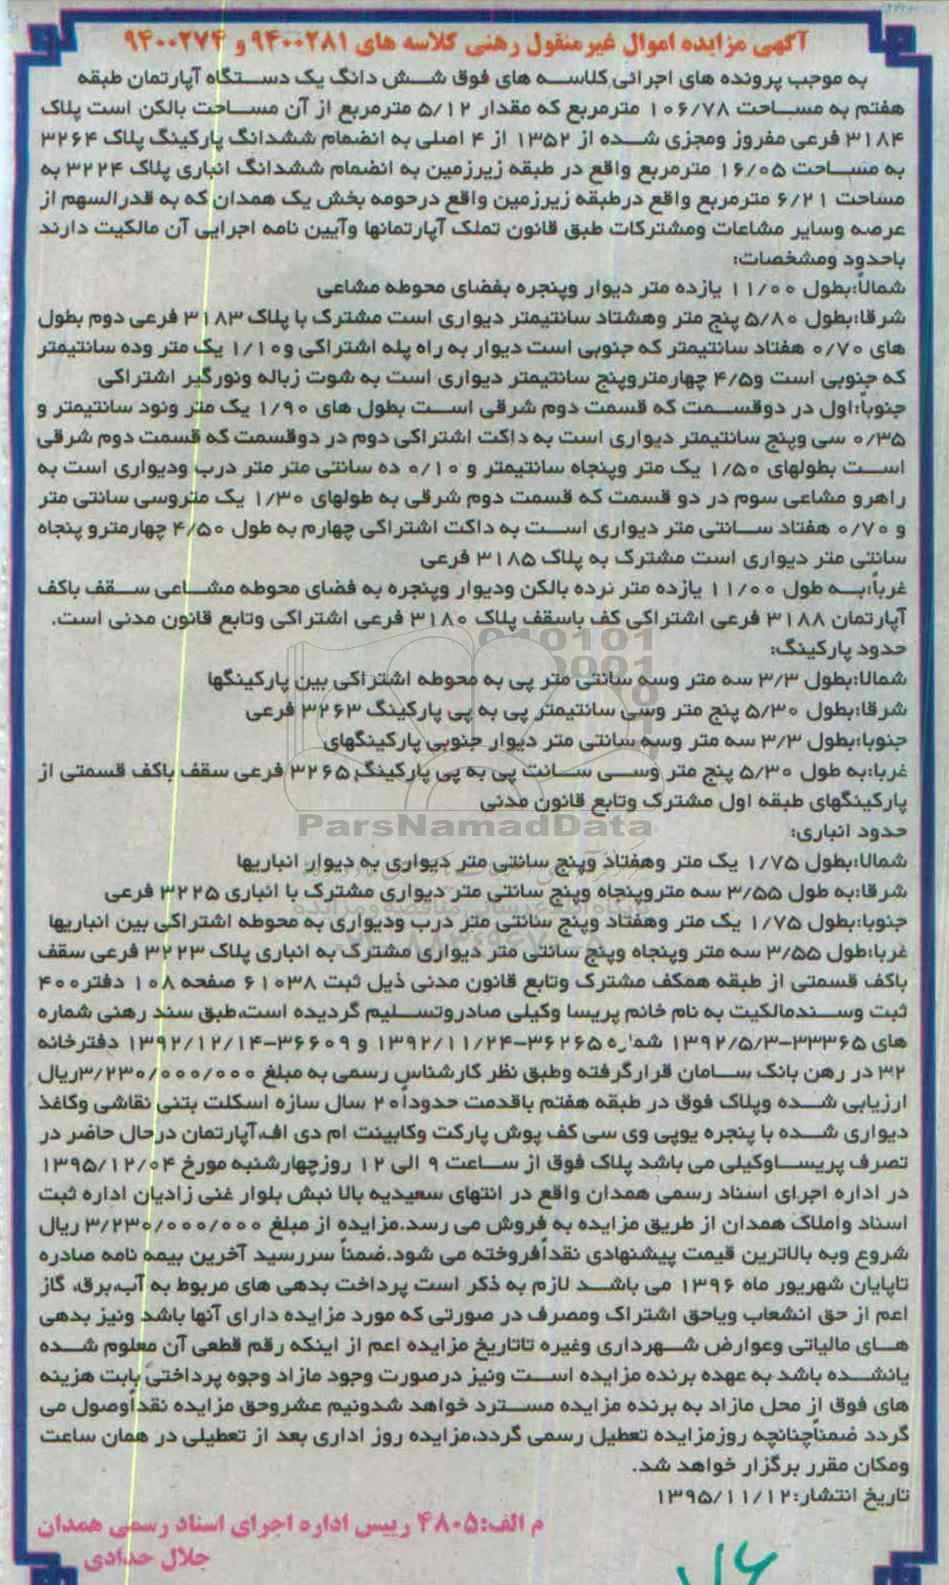 آگهی مزایده اموال غیرمنقول رهنی کلاسه های ۹۴۰۰۲۸۱ و ۹۴۰۰۲۷۴
به موجب پرونده های اجرائی کلاسه های فوق شش دانگ یک دستگاه آپارتمان طبقه
هفتم به مساحت ۱۰۶/۷۸ مترمربع که مقدار ۵/۱۲ مترمربع از آن مساحت بالکن است پلاک
۳۱۸۴ فرعی مفروز ومجزی شده از ۱۳۵۲ از ۴ اصلی به انضمام ششدانگ پارکینگ پلاک ۳۲۶۴
به مساحت ۱۶/۰۵ مترمربع واقع در طبقه زیرزمین به انضمام ششدانگ انباری پلاک ۳۲۲۴ به
مساحت ۶/۲۱ مترمربع واقع درطبقه زیرزمین واقع درحومه بخش یک همدان که به قدرالسهم از
عرصه وسایر مشاعات ومشترکات طبق قانون تملک آپارتمانها وآیین نامه اجرایی آن مالکیت دارند
باحدود ومشخصات:
شمالاً:بطول ۱۱/۰۰ یازده متر دیوار وپنجره بفضای محوطه مشاعی
شرقا:بطول ۵/۸۰ پنج متر وهشتاد سانتیمتر دیواری است مشترک با پلاک ۳۱۸۳ فرعی دوم بطول
های ۰/۷۰ هفتاد سانتیمتر که جنوبی است دیوار به راه پله اشتراکی و۱/۱۰ یک متر وده سانتیمتر
که جنوبی است و۴/۵ چهارمتروپنج سانتیمتر دیواری است به شوت زباله ونورگیر اشتراکی
جنوباً:اول در دوقسمت که قسمت دوم شرقی است بطول های ۱/۹۰ یک متر ونود سانتیمتر و
۰/۳۵ سی وپنج سانتیمتر دیواری است به داکت اشتراکی دوم در دوقسمت که قسمت دوم شرقی
است بطولهای ۱/۵۰ یک متر وپنجاه سانتیمتر و ۰/۱۰ ده سانتی متر متر درب ودیواری است به
راهرو مشاعی سوم در دو قسمت که قسمت دوم شرقی به طولهای ۱/۳۰ یک متروسی سانتی متر
و ۰/۷۰ هفتاد سانتی متر دیواری است به داکت اشتراکی چهارم به طول ۴/۵۰ چهارمترو پنجاه
سانتی متر دیواری است مشترک به پلاک ۳۱۸۵ فرعی
غرباً:به طول ۱۱/۰۰ یازده متر نرده بالکن ودیوار وپنجره به فضای محوطه مشاعی سقف باکف
آپارتمان ۳۱۸۸ فرعی اشتراکی کف باسقف پلاک ۳۱۸۰ فرعی اشتراکی وتابع قانون مدنی است.
حدود پارکینگ:
شمالا:بطول ۳/۳ سه متر وسه سانتی متر پی به محوطه اشتراکی بین پارکینگها
شرقا:بطول ۵/۳۰ پنج متر وسی سانتیمتر پی به پی پارکینگ ۳۲۶۳ فرعی
جنوبا:بطول ۳/۳ سه متر وسه سانتی متر دیوار جنوبی پارکینگهای
غربا:به طول ۵/۳۰ پنج متر وسی سانت پی به پی پارکینگ ۳۲۶۵ فرعی سقف باکف قسمتی از
پارکینگهای طبقه اول مشترک وتابع قانون مدنی
ParsNamadData
حدود انباری:
شمالا:بطول ۱/۷۵ یک متر وهفتاد وپنج سانتی متر دیواری به دیوار انباریها
شرقا:به طول ۳/۵۵ سه متروپنجاه وپنج سانتی متر دیواری مشترک با انباری ۳۲۲۵ فرعی
جنوبا:بطول ۱/۷۵ یک متر وهفتاد وپنج سانتی متر درب ودیواری به محوطه اشتراکی بین انباریها
غربا:طول ۳/۵۵ سه متر وپنجاه وپنج سانتی متر دیواری مشترک به انباری پلاک ۳۲۲۳ فرعی سقف
باکف قسمتی از طبقه همکف مشترک وتابع قانون مدنی ذیل ثبت ۶۱۰۳۸ صفحه ۱۰۸ دفتر۴۰۰
ثبت وسندمالکیت به نام خانم پریسا وکیلی صادروتسلیم گردیده است،طبق سند رهنی شماره
های ۳۳۳۶۵-۱۳۹۲/۵/۳ شماره ۳۶۲۶۵-۱۳۹۲/۱۱/۲۴ و ۳۶۶۰۹-۱۳۹۲/۱۲/۱۴ دفترخانه
۳۲ در رهن بانک سامان قرارگرفته وطبق نظر کارشناس رسمی به مبلغ ۳/۲۳۰/۰۰۰/۰۰۰ریال
ارزیابی شده وپلاک فوق در طبقه هفتم باقدمت حدودا۲۰ سال سازه اسکلت بتنی نقاشی وکاغذ
دیواری شده با پنجره یوپی وی سی کف پوش پارکت وکابینت ام دی اف،آپارتمان درحال حاضر در
تصرف پریساوکیلی می باشد پلاک فوق از ساعت ۹ الی ۱۲ روزچهارشنبه مورخ ۱۳۹۵/۱۲/۰۴
در اداره اجرای اسناد رسمی همدان واقع در انتهای سعیدیه بالا نبش بلوار غنی زادیان اداره ثبت
اسناد واملاک همدان از طریق مزایده به فروش می رسد.مزایده از مبلغ ۳/۲۳۰/۰۰۰/۰۰۰ ریال
شروع وبه بالاترین قیمت پیشنهادی نقداًفروخته می شود.ضمناً سررسید آخرین بیمه نامه صادره
تاپایان شهریور ماه ۱۳۹۶ می باشد لازم به ذکر است پرداخت بدهی های مربوط به آب،برق، گاز
اعم از حق انشعاب ویاحق اشتراک ومصرف در صورتی که مورد مزایده دارای آنها باشد ونیز بدهی
های مالیاتی وعوارض شهرداری وغیره تاتاریخ مزایده اعم از اینکه رقم قطعی آن معلوم شده
یانشده باشد به عهده برنده مزایده است ونیز درصورت وجود مازاد وجوه پرداختی بابت هزینه
های فوق از محل مازاد به برنده مزایده مسترد خواهد شدونیم عشروحق مزایده نقداًوصول می
گردد ضمناًچنانچه روزمزایده تعطیل رسمی گردد،مزایده روز اداری بعد از تعطیلی در همان ساعت
ومکان مقرر برگزار خواهد شد.
تاریخ انتشار:۱۳۹۵/۱۱/۱۲
م الف:۴۸۰۵ رییس اداره اجرای اسناد رسمی همدان
جلال حدادی